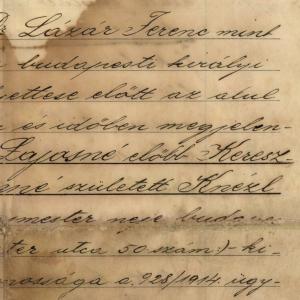 Dr Lázár Ferenc mint
a budapesti királyi
előtt az alul
és időben megjelen-
Lajosné előbb Keresz-
né született Knézl
mester neje budapes
ter utca 50 szám:/- ki-
nossága a. 928/1914. ügy-